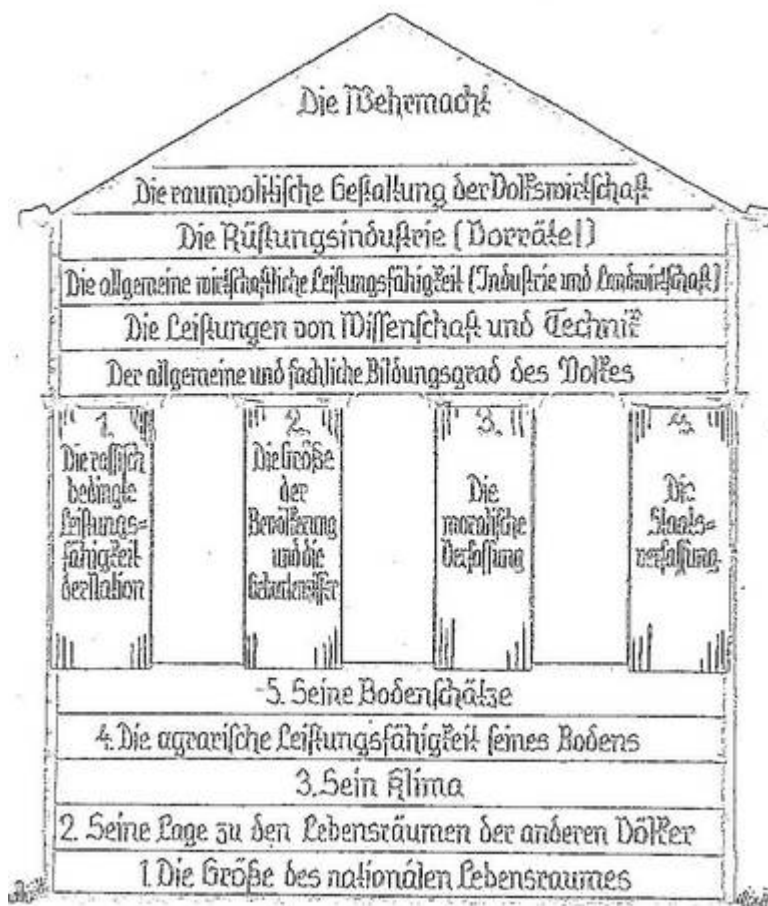 Die Wehrmacht
Die raumpolitische Gestaltung der Volkswirtschaft
Die Rüstungsindustrie (Vorräte!)
Die allgemeine wirtschaftliche Leistungsfähigkeit (Industrie und Landwirtschaft)
Die Leistungen von Wissenschaft und Technik
Der allgemeine und fachliche Bildungsgrad des Volkes
1.
Die rassisch
bedingte
Leistungs=
fähigkeit
der Nation
2.
Die Größe
der
Bevölkerung
und die
Geburtenziffer
3.
Die
moralische
Verfassung
4.
Die
Staats=
verfassung
5. Seine Bodenschätze
4. Die agrarische Leistungsfähigkeit seines Bodens
3. Sein Klima
2. Seine Lage zu den Lebensräumen der anderen Völker
1. Die Größe des nationalen Lebensraumes